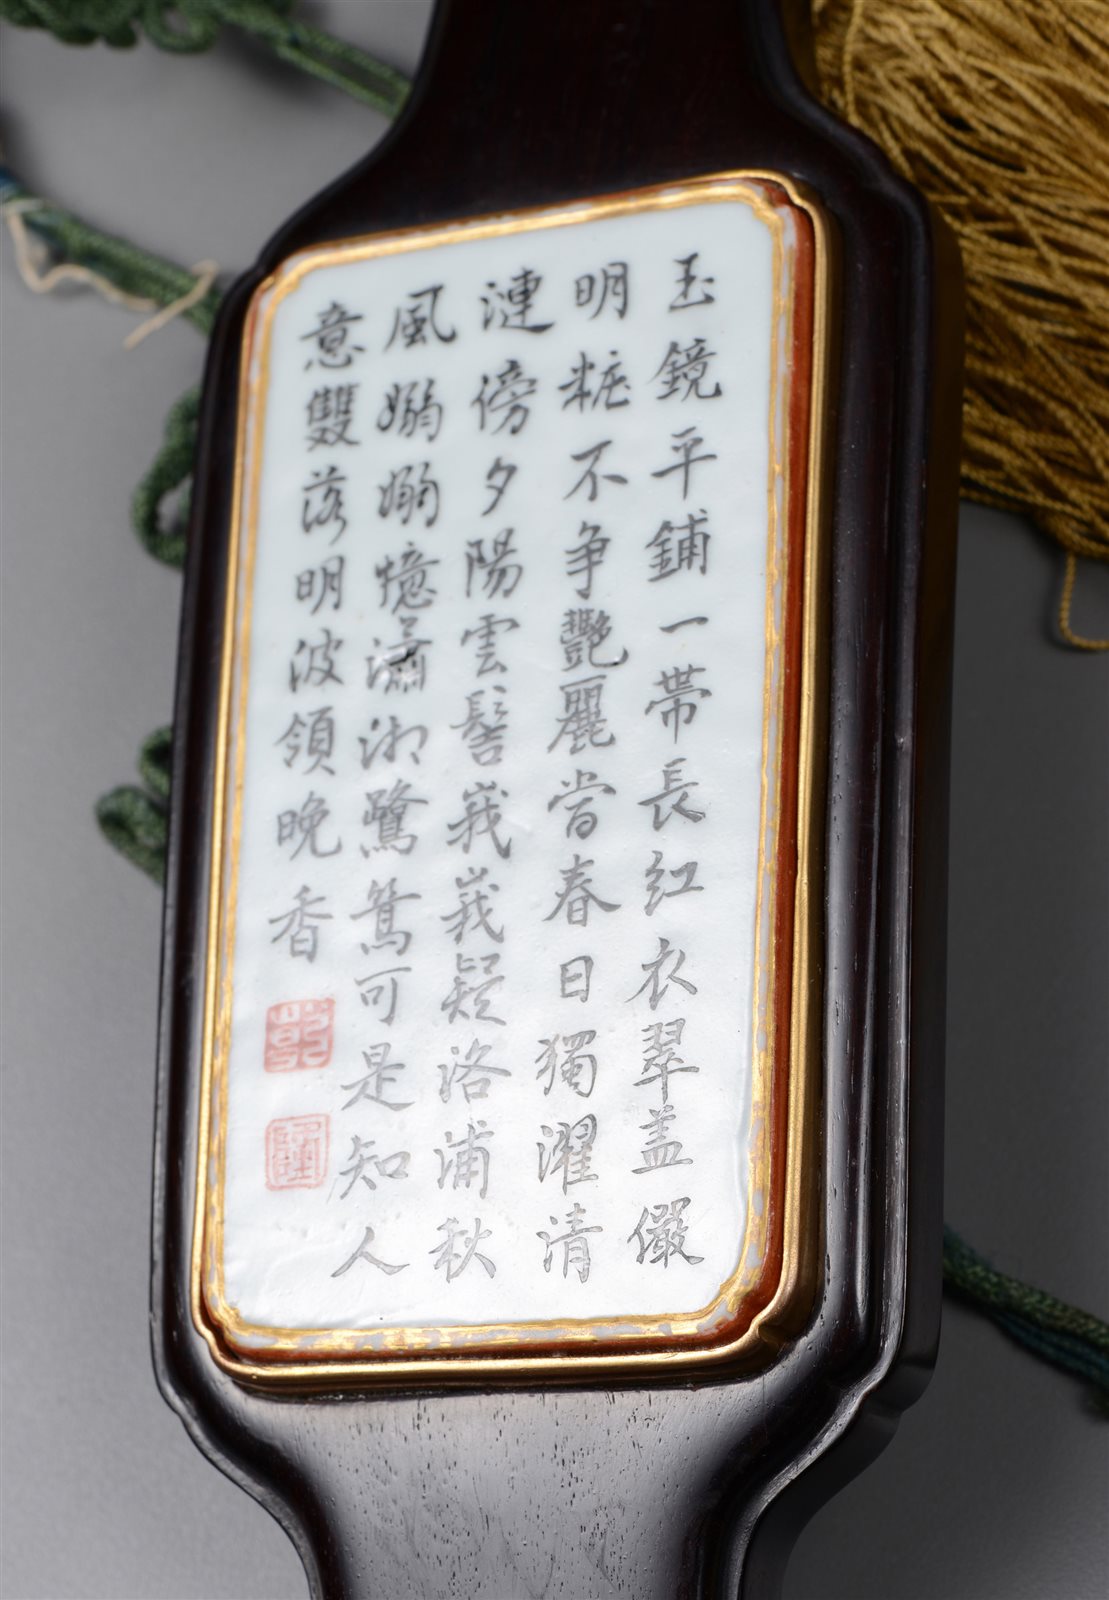 玉鏡平鋪一帶長紅衣翠盖儼
明粧不争艷麗當春日獨濯清
漣傍夕陽雲髻峩峩疑洛浦秋
風嫋嫋憶瀟湘鷺鴛可是知人
意雙落明波領晚香